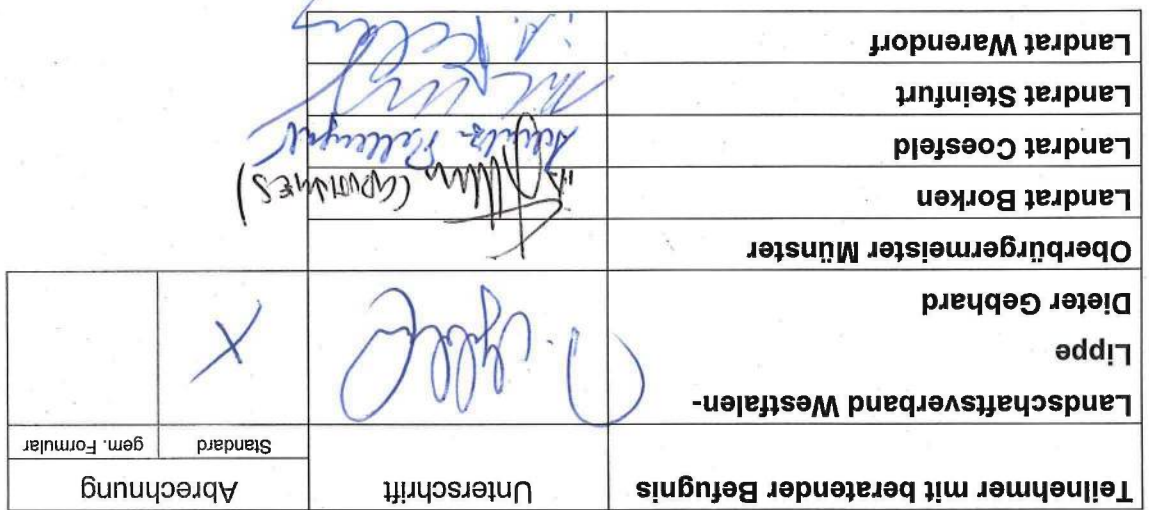 Teilnehmer mit beratender Befugnis
Unterschrift
Abrechnung
Standard
gem. Formular
Landschaftsverband Westfalen-
Lippe
Dieter Gebhard
X
Oberbürgermeister Münster
Landrat Borken
Landrat Coesfeld
Landrat Steinfurt
Landrat Warendorf